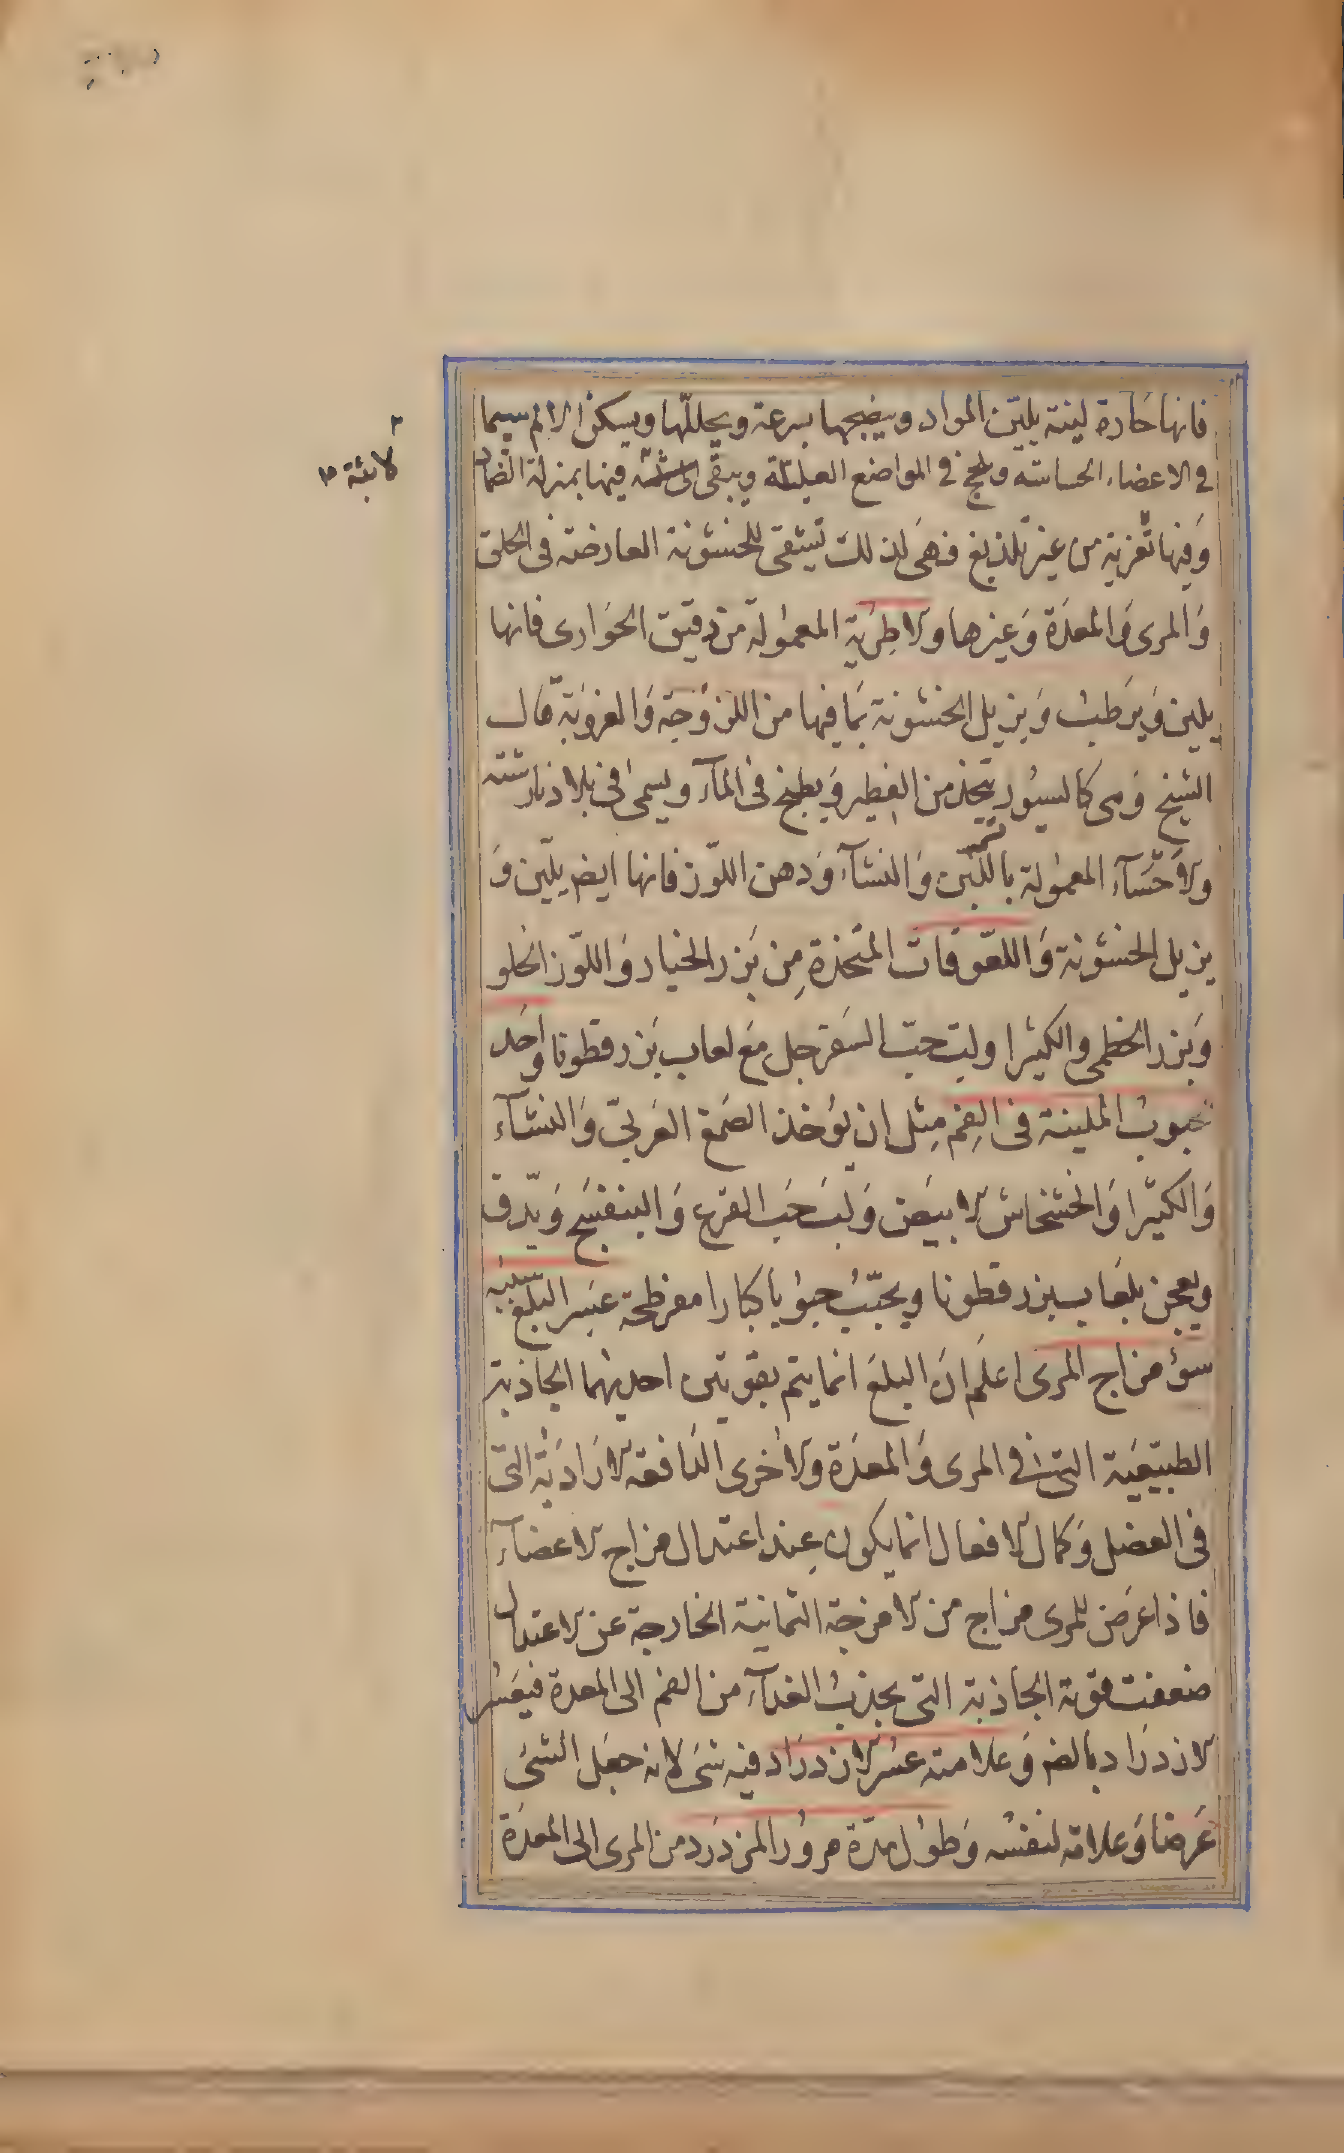 فانها حارة لينة يلين المواد وينضجها بسرعة ويحللها ويسكن الالم سيما
في الاعضاء الحساسة ويلحج في المواضع العليلة ويبقى فيها بمنزلة الضماد
لابثة
وفيها تغرية من غير تلذيغ فهى لذلك تسقى للخشونة العارضة فى الحلق
والمرى والمعدة وغيرها والاطرية المعمولة من دقيق الحوارى فانها
يلين ويرطب ويزيل الخشونة بما فيها من اللزوجة والغروية قال
الشيخ وهى كالسيور يتخذ من الفطير ويطبخ فى المآء ويسمى فى بلادنا رشته
والاحسآء المعمولة باللبن والنشآء ودهن اللوز فانها ايضا يلين و
يزيل الخشونة واللعوقات المتخذة من بزر الخيار واللوز الحلو
وبزر الخطمى والكثيرا ولب حب السفرجل مع لعاب بزر قطونا واحد
حبوب الملينة فى الفم مثل ان يؤخذ الصمغ العربى والنشآء
والكثيرا والخشخاش الابيض ولب حب القرع والبنفسج ويدق
ويعجن بلعاب بزر قطونا ويحبب حبوبا كبارا مفرطحة عسر البلع سببه
سوء مزاج المرى اعلم ان البلع انما يتم بقوتين احديهما الجاذبة
الطبيعية التى فى المرى والمعدة والاخرى الدافعة الارادية التى
فى العضل وكمال الافعال انما يكون عند اعتدال مزاج الاعضآء
فاذا عرض للمرى مزاج من الامزجة الثمانية الخارجة عن الاعتدال
ضعفت قوته الجاذبة التى يجذب الغذآء من الفم الى المعدة فيعسر
الازدراد بالضم وعلامته عسر الازدراد فيه شئ لانه جعل الشئ
عرضا وعلامة لنفسه وطول مدة مرور المزدرد من المرى الى المعدة